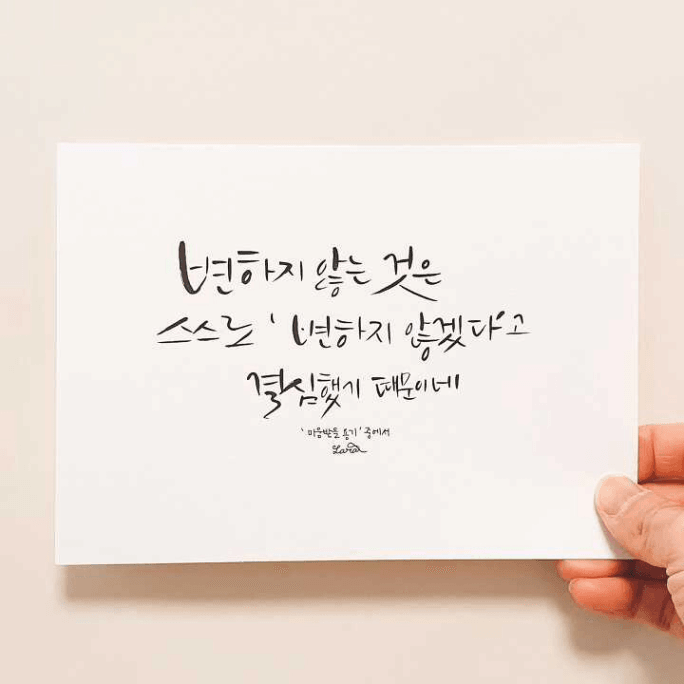 변하지 않는 것은
스스로 '변하지 않겠다'고
결심했기 때문이네
'미움받을 용기' 중에서